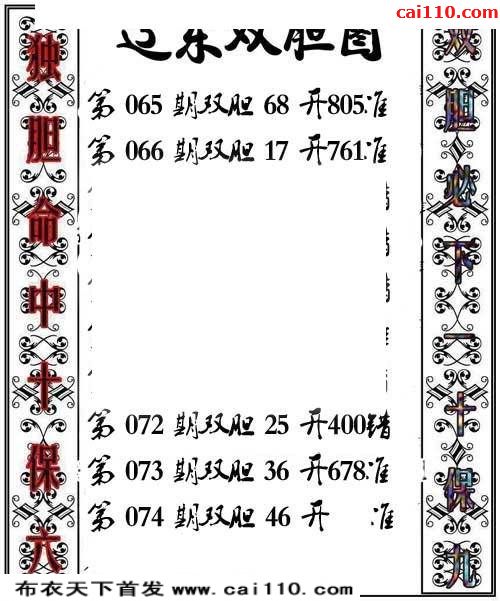 cai110.com
双胆图
独胆命中十保六
双胆必下一十保九
第 065 期双胆 68 开805准
第 066 期双胆 17 开761准
第 072 期双胆 25 开400错
第 073 期双胆 36 开678准
第 074 期双胆 46 开 准
布衣天下首发 www.cai110.com